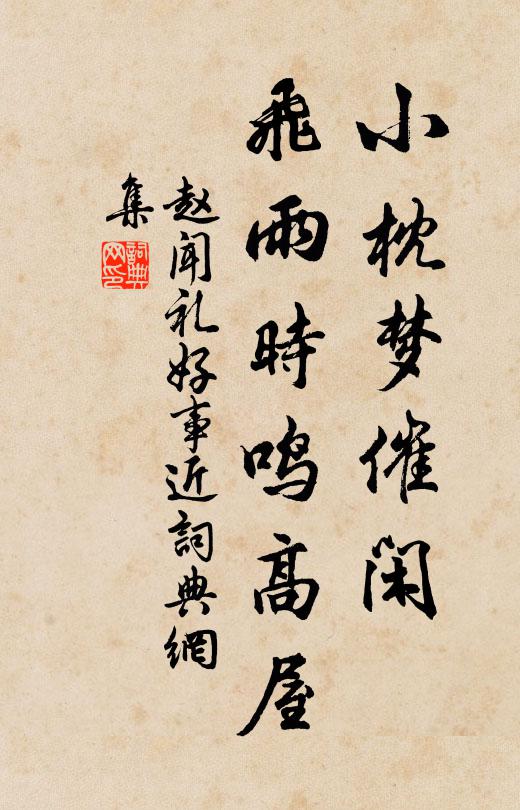 小枕梦催闲
飛雨時鸣高屋
赵闻礼好事近詞典網
集
詞典网印